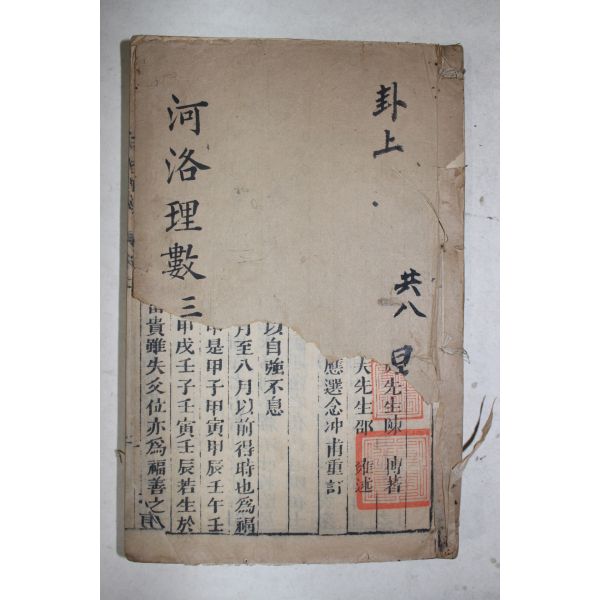 卦上
共八
河洛理數 三
先生陳 摶著
夫先生邵 雍述
應選念冲甫重訂
以自強不息
月至八月以前得時也爲福
是甲子甲寅甲辰壬午壬
甲戌壬子壬寅壬辰若生於
富貴雖失爻位亦爲福善之